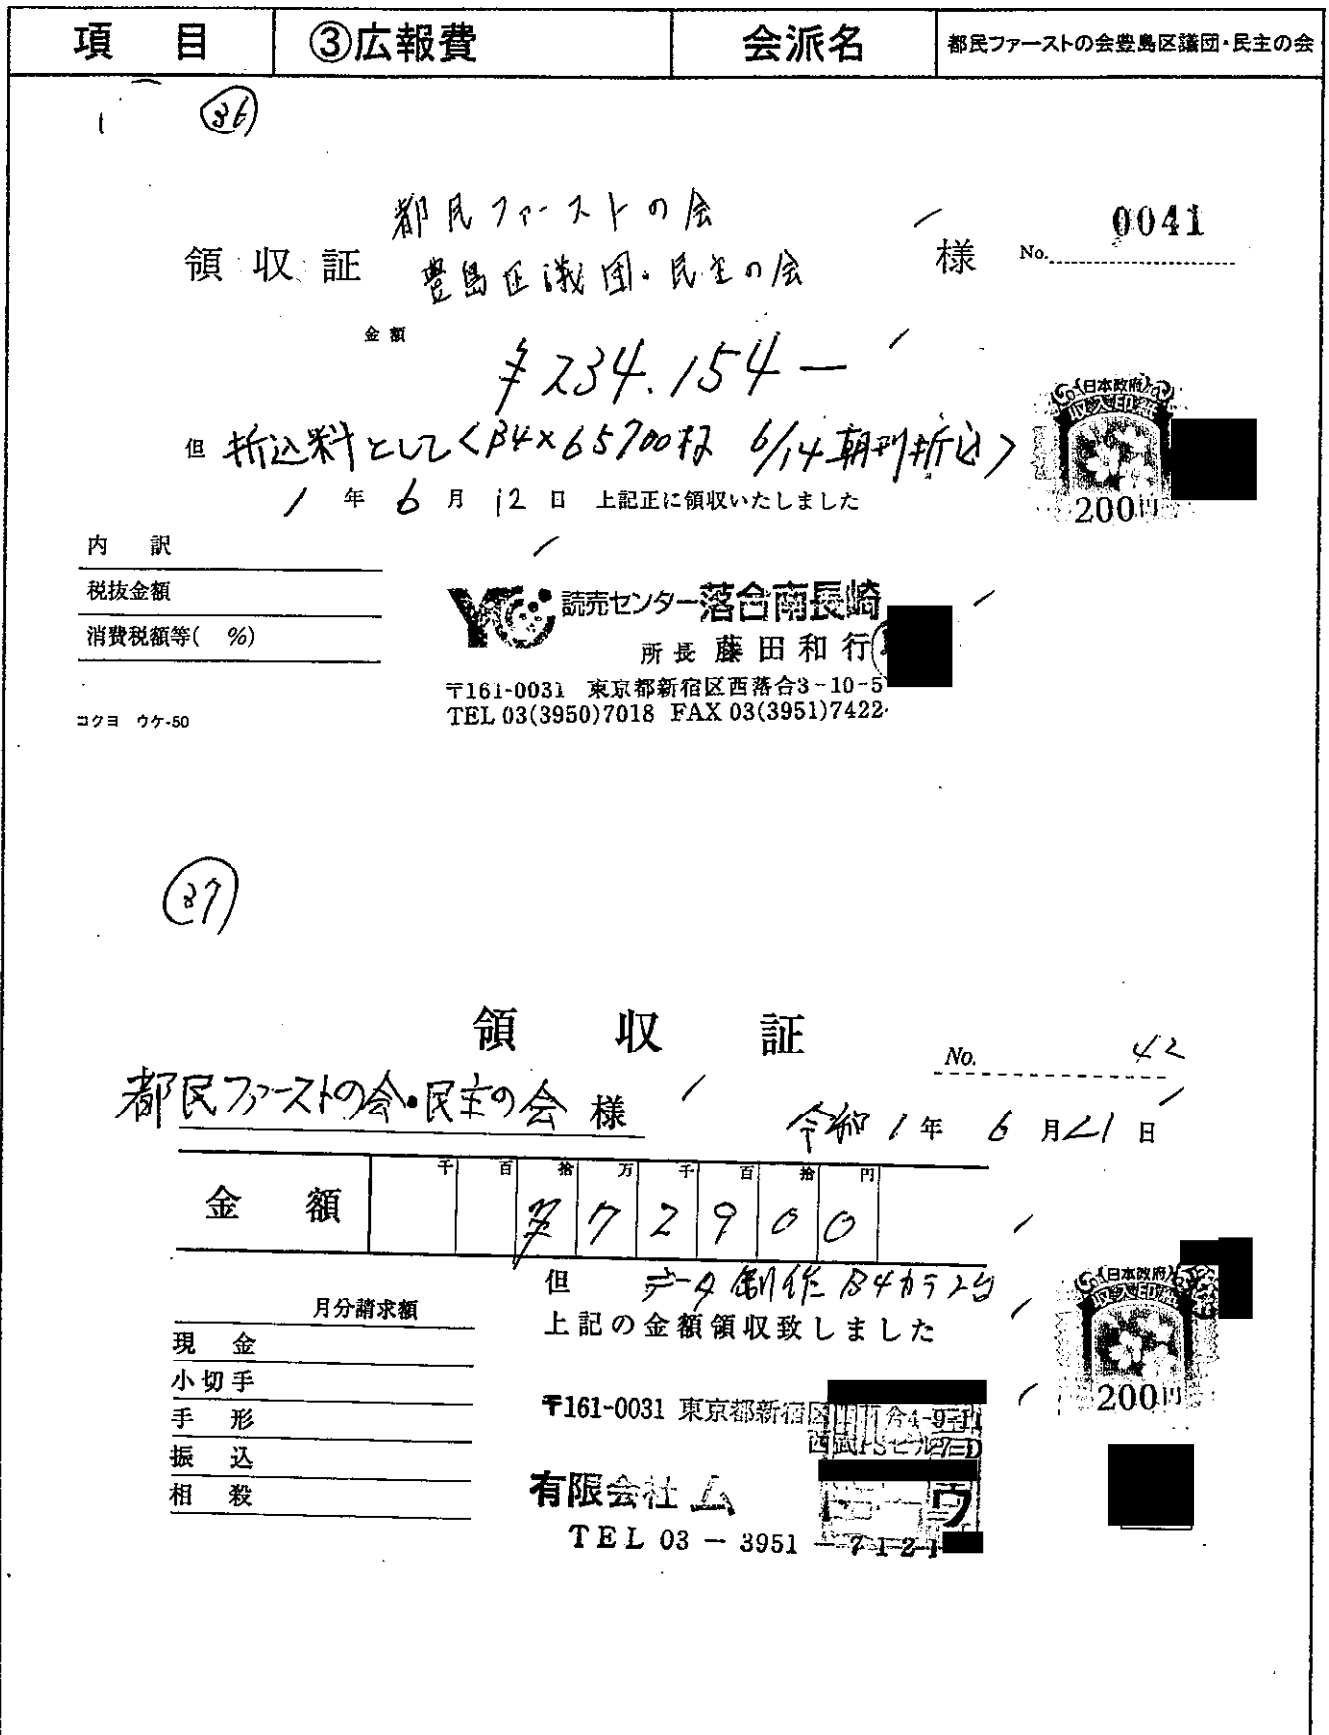 項 目 ③広報費 会派名 都民ファーストの会豊島区議団・民主の会
36
都民ファーストの会
領収証 豊島区議団・民主の会 様 No. 0041
金額
¥234,154—
但 折込料として<B4×65700枚 6/14朝刊折込>
1年 6月 12日 上記正に領収いたしました
日本政府
収入印紙
200円
内 訳
税抜金額
消費税額等( %)
コクヨ ウケ-50
YC 読売センター落合南長崎
所長 藤田和行
〒161-0031 東京都新宿区西落合3-10-5
TEL 03(3950)7018 FAX 03(3951)7422
37
領 収 証
No. 42
都民ファーストの会・民主の会 様
令和 1年 6月21日
千 百 拾 万 千 百 拾 円
金 額 ¥ 7 2 9 0 0
但 データ制作 B4カラー
上記の金額領収致しました
日本政府
収入印紙
200円
月分請求額
現 金
小切手
手 形
振 込
相 殺
〒161-0031 東京都新宿区 4-9-11
有限会社 ム ウ
TEL 03-3951-7121